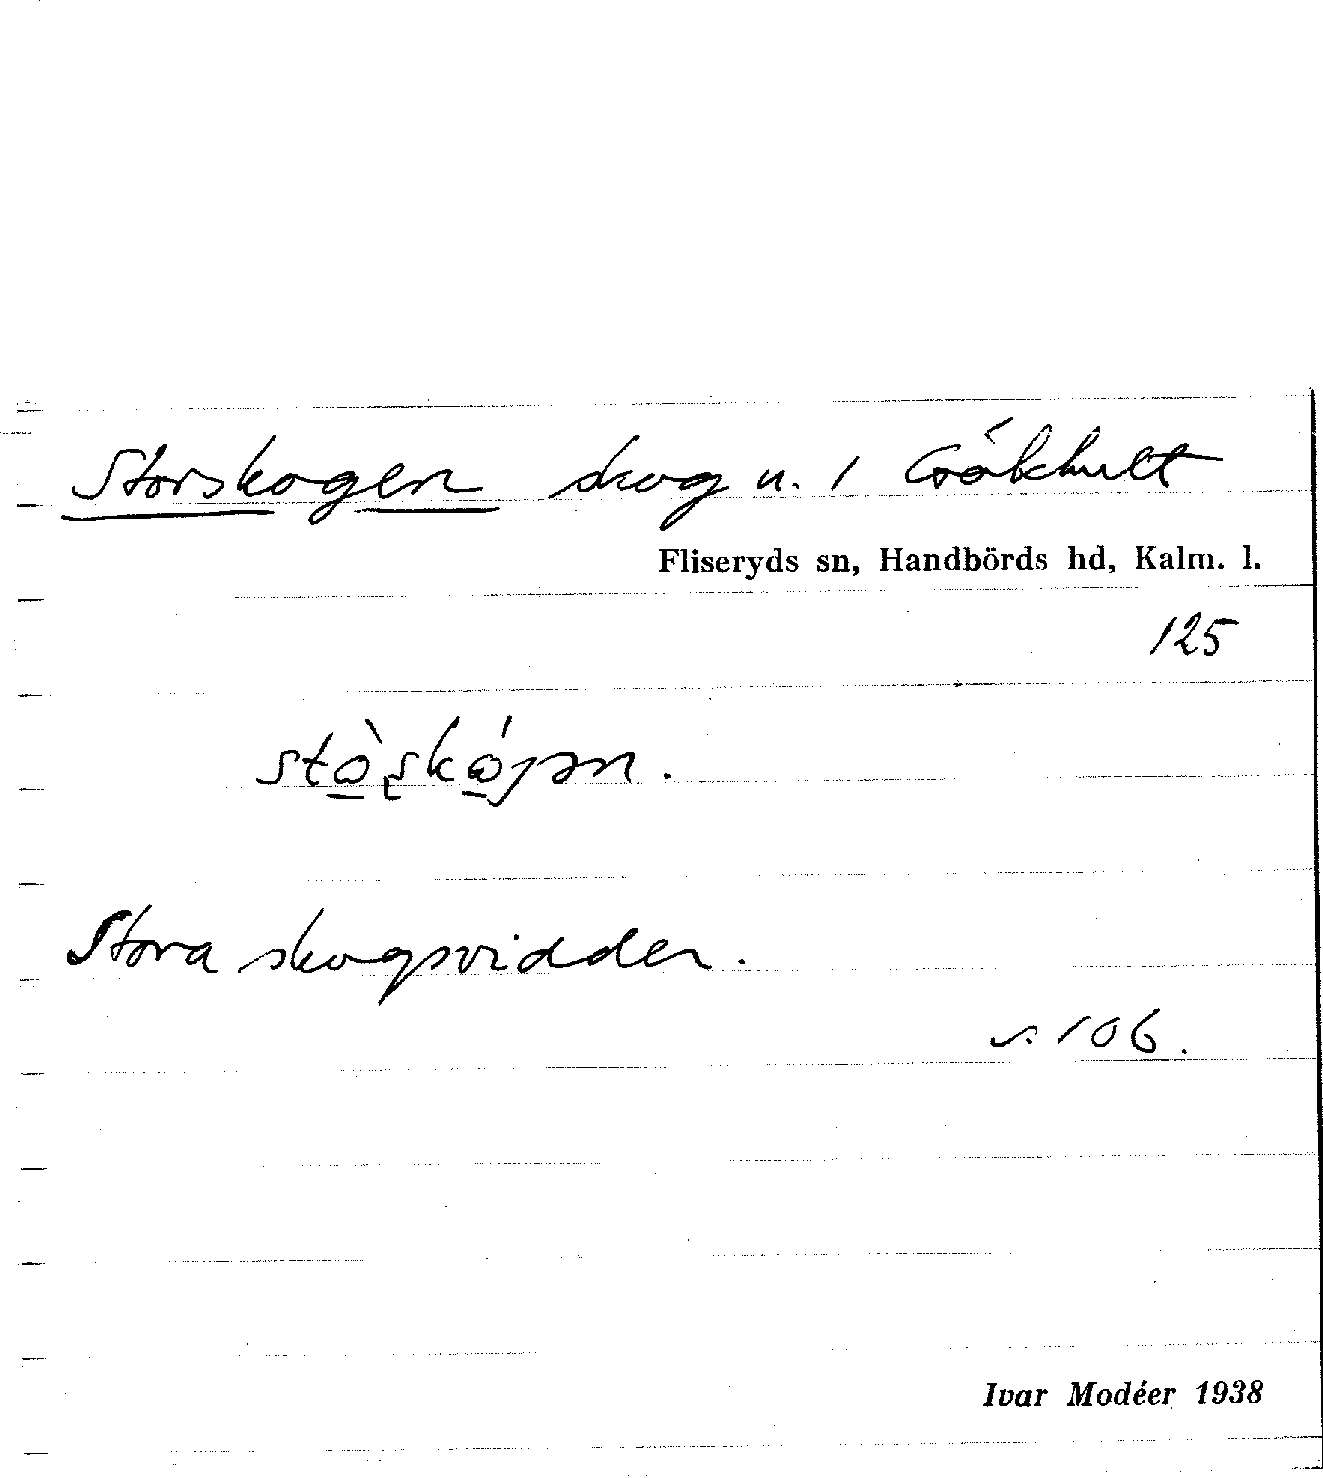 Storskogen skog u. 1 Gökhult
Fliseryds sn, Handbörds hd, Kalm. l.
125
Stora skogsvidder.
s. 106.
Ivar Modéer 1938